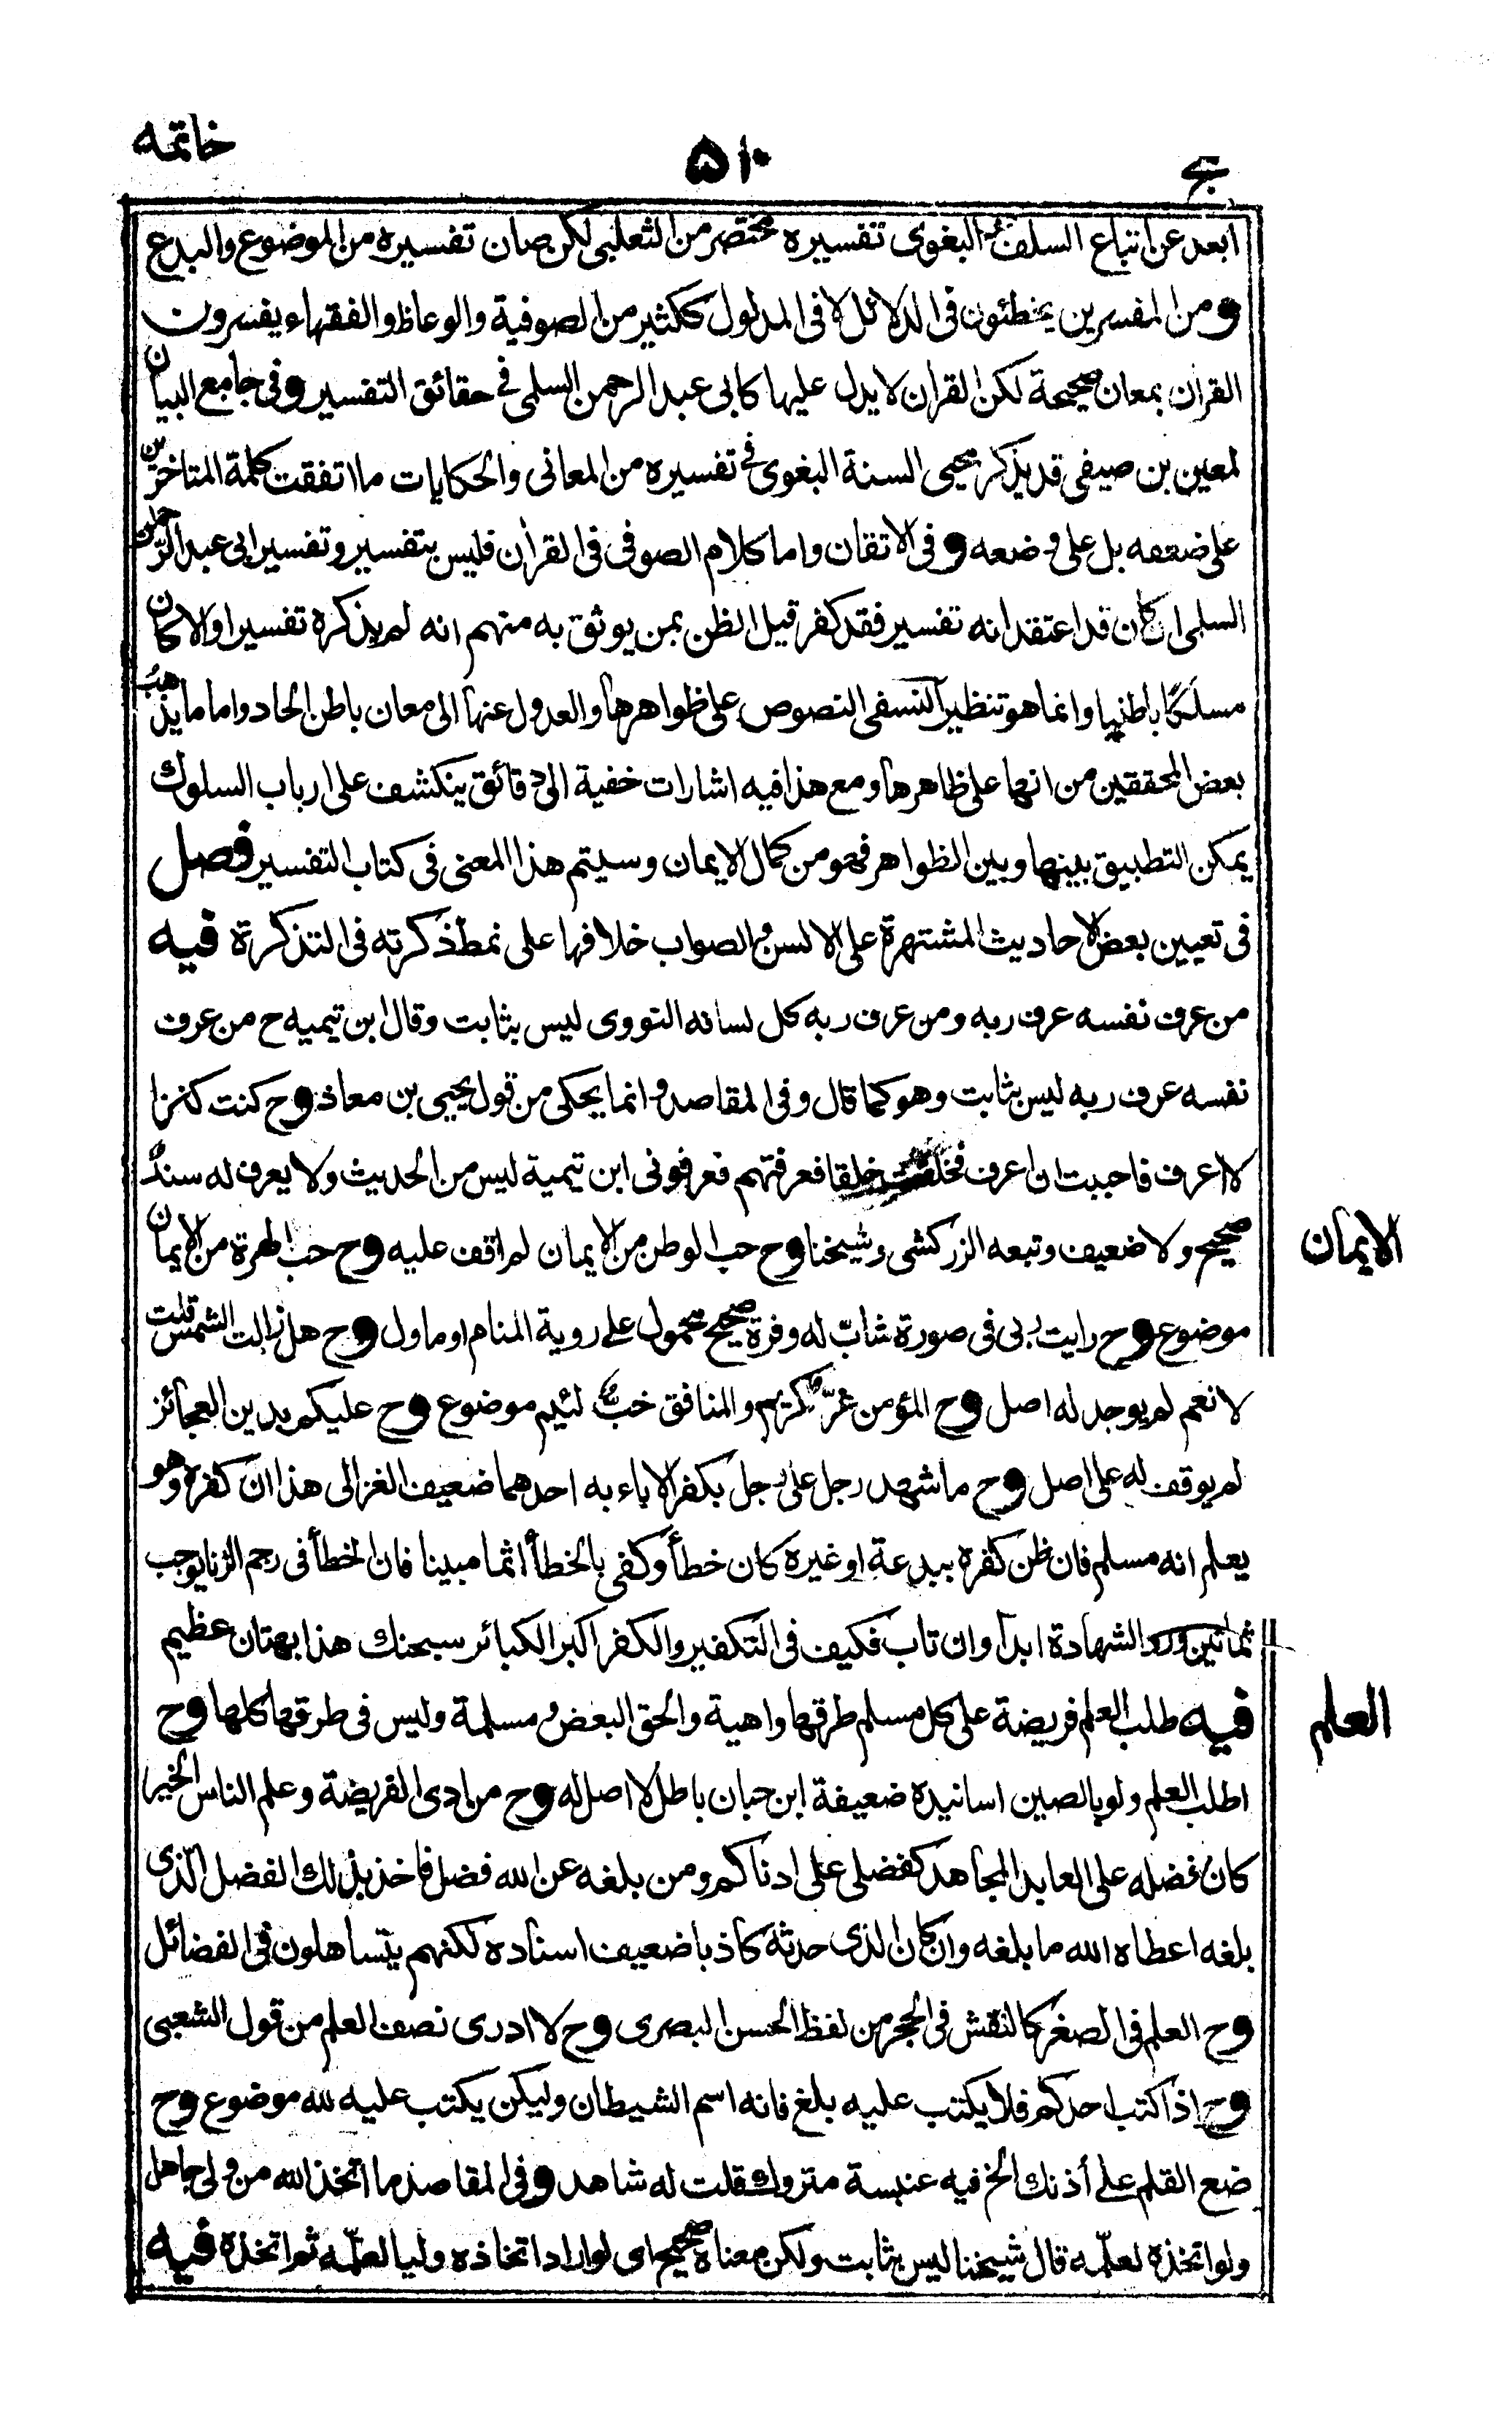 خاتمه
۵۱۰
ج
ابعد عن اتباع السلف البغوى تفسيره مختصر من الثعلبى لكن صان تفسيره من الموضوع والبدع
ومن المفسرين يخطئون فى الدلائل لا فى المدلول ككثير من الصوفية والوعاظ والفقهاء يفسرون
القران بمعان صحيحة لكن القران لا يدل عليها كابى عبد الرحمن السلمى فى حقائق التفسير وفى جامع البيان
لمعين بن صيفى قد يذكر محيى السنة البغوى فى تفسيره من المعانى والحكايات ما اتفقت كلمة المتاخرين
على ضعفه بل على وضعه وفى الاتقان واما كلام الصوفى فى القرأن فليس بتفسير وتفسير ابى عبد الرحمن
السلمى ان كان قد اعتقد انه تفسير فقد كفر قيل الظن بمن يوثق به منهم انه لم يذكره تفسيرا والا كان
مسلكا باطنيا وانما هو تنظير النسفى النصوص على ظواهرها والعدول عنها الى معان باطن الحاد واما ما يذهب
بعض المحققين من انها على ظاهرها ومع هذا فيه اشارات خفية الى دقائق ينكشف على ارباب السلوك
يمكن التطبيق بينها وبين الظواهر فهو من كمال الايمان وسيتم هذا المعنى فى كتاب التفسير فصل
فى تعيين بعض الاحاديث المشتهرة على الالسن والصواب خلافها على نمط ذكرته فى التذكرة فيه
من عرف نفسه عرف ربه ومن عرف ربه كل لسانه النووى ليس بثابت وقال ابن تيميه ح من عرف
نفسه عرف ربه ليس بثابت وهو كما قال وفى المقاصد وانما يحكى من قول يحيى بن معاذ وح كنت كنزا
لا اعرف فاحببت ان اعرف فخلقت خلقا فعرفتهم فعرفونى ابن تيمية ليس من الحديث ولا يعرف له سند
صحيح ولا ضعيف وتبعه الزركشى وشيخنا وح حب الوطن من الايمان لم اقف عليه وح حب الهرة من الايمان
الايمان
موضوع وح رايت ربى فى صورة شاب له وفرة صحيح محمول على روية المنام او ماول وح هل زالت الشمس قلت
لا نعم لم يوجد له اصل وح المؤمن غر كريم والمنافق خب لئيم موضوع وح عليكم بدين العجائز
لم يوقف له على اصل وح ما شهد رجل على رجل بكفر الا باء به احدهما ضعيف الغزالى هذا ان كفره وهو
يعلم انه مسلم فان ظن كفره ببدعة او غيره كان خطأ وكفى بالخطأ اثما مبينا فان الخطأ فى رجم الزنا يوجب
ثمانين ورد الشهادة ابدا وان تاب فكيف فى التكفير والكفر اكبر الكبائر سبحنك هذا بهتان عظيم
فيه طلب العلم فريضة على كل مسلم طرقها واهية والحق البعض ومسلمة وليس فى طرقها كلها وح
العلم
اطلب العلم ولو بالصين اسانيده ضعيفة ابن حبان باطل لا اصل له وح من ادى الفريضة وعلم الناس الخير
كان فضله على العابد المجاهد كفضلى على ادناكم ومن بلغه عن الله فضل فاخذ بذلك الفضل الذى
بلغه اعطاه الله ما بلغه وان كان الذى حدثه كاذبا ضعيف اسناده لكنهم يتساهلون فى الفضائل
وح العلم فى الصغر كالنقش فى الحجر من لفظ الحسن البصرى وح لا ادرى نصف العلم من قول الشعبى
وح اذا كتب احدكم فلا يكتب عليه بلغ فانه اسم الشيطان وليكن يكتب عليه لله موضوع وح
ضع القلم على أذنك الخ فيه عنبسة متروك قلت له شاهد وفى المقاصد ما اتخذ الله من ولى جاهل
ولو اتخذه لعلمه قال شيخنا ليس بثابت ولكن معناه صحيح اى لو اراد اتخاذه وليا لعلمه ثم اتخذه فيه